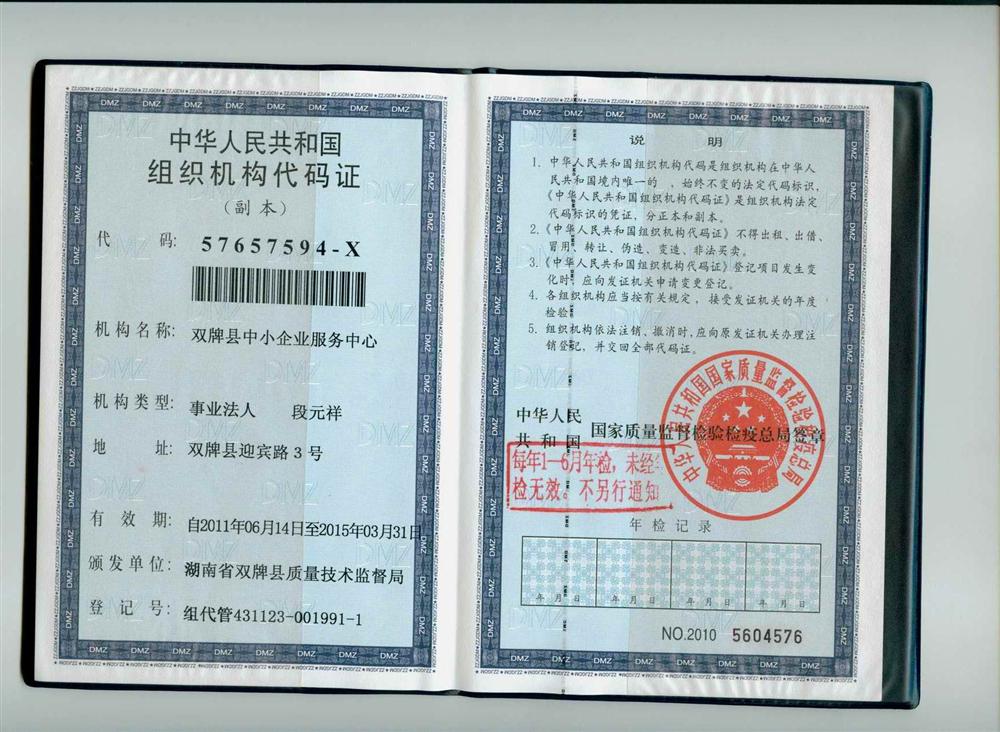 中华人民共和国
组织机构代码证
（副本）
代 码: 57657594-X
机构名称: 双牌县中小企业服务中心
机构类型: 事业法人 段元祥
地 址: 双牌县迎宾路3号
有 效 期: 自2011年06月14日至2015年03月31日
颁发单位: 湖南省双牌县质量技术监督局
登 记 号: 组代管431123-001991-1
说 明
1. 中华人民共和国组织机构代码是组织机构在中华人
民共和国境内唯一的 、始终不变的法定代码标识，
《中华人民共和国组织机构代码证》是组织机构法定
代码标识的凭证，分正本和副本。
2.《中华人民共和国组织机构代码证》不得出租、出借、
冒用、转让、伪造、变造、非法买卖。
3.《中华人民共和国组织机构代码证》登记项目发生变
化时，应向发证机关申请变更登记。
4. 各组织机构应当按有关规定，接受发证机关的年度
检验。
5. 组织机构依法注销、撤消时，应向原发证机关办理注
销登记，并交回全部代码证。
中华人民
共 和 国 国家质量监督检验检疫总局签章
中华人民共和国国家质量监督检验检疫总局
每年1—6月年检，未经年
检无效。不另行通知
年 检 记 录
年 月 日 年 月 日 年 月 日 年 月 日
NO.2010 5604576